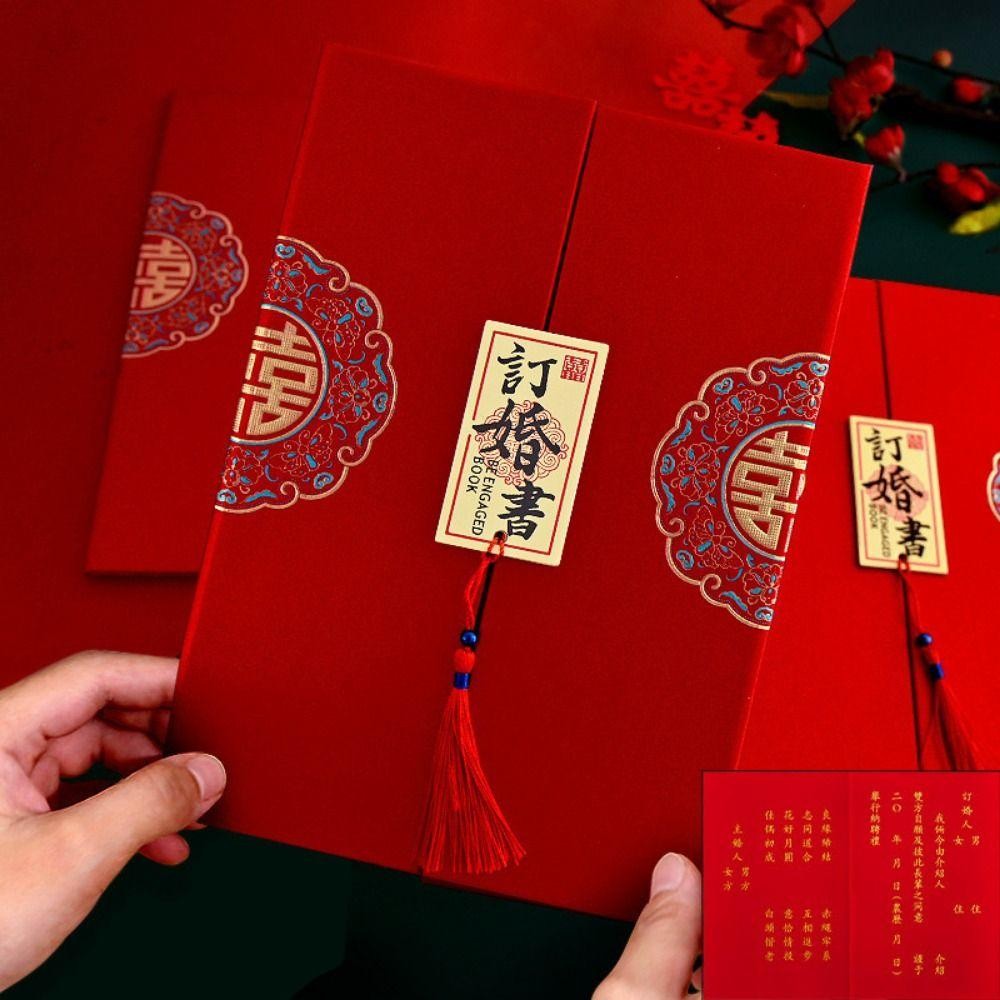 囍
訂婚書
BE ENGAGED
BOOK
訂婚書
BE ENGAGED
BOOK
訂婚人 男 住
女 住
我倆今由介紹人 介紹
雙方自願及彼此長輩之同意 謹于
二〇 年 月 日(農曆 月 日)
舉行納聘禮
良緣締結 赤繩牢系
志同道合 互相進步
花好月圓 意恰情投
佳偶初成 白頭偕老
主婚人 男方
女方